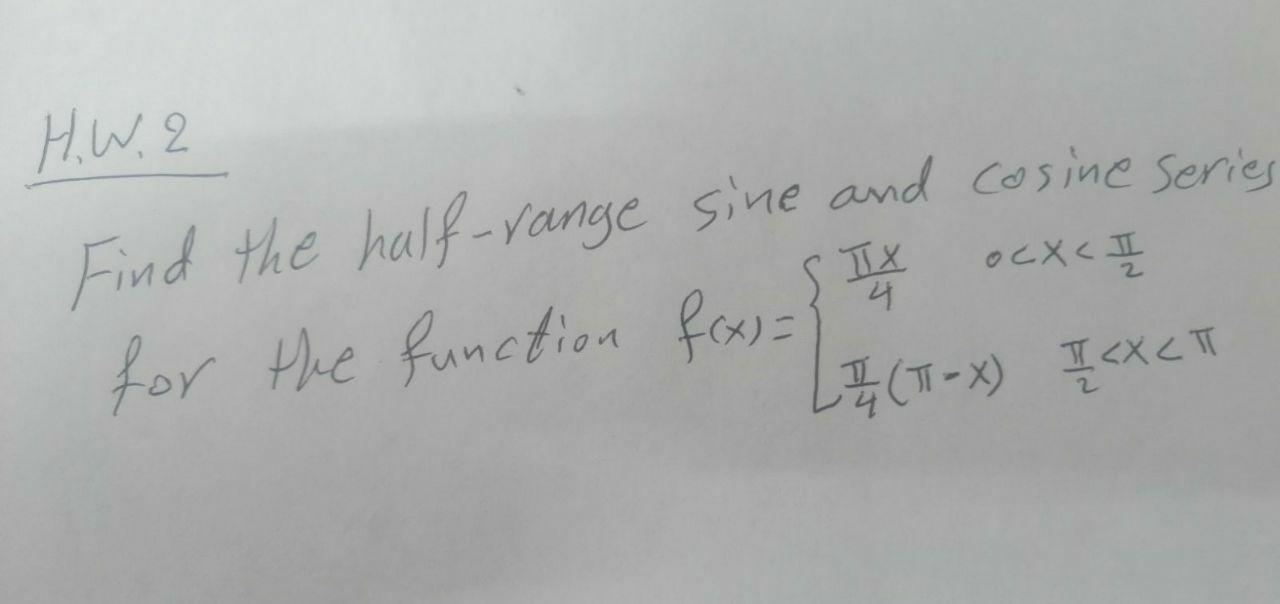 H.W.2
Find the half-range sine and cosine series
for the function f(x) = { πx/4   0<x<π/2
π/4 (π-x)   π/2<x<π